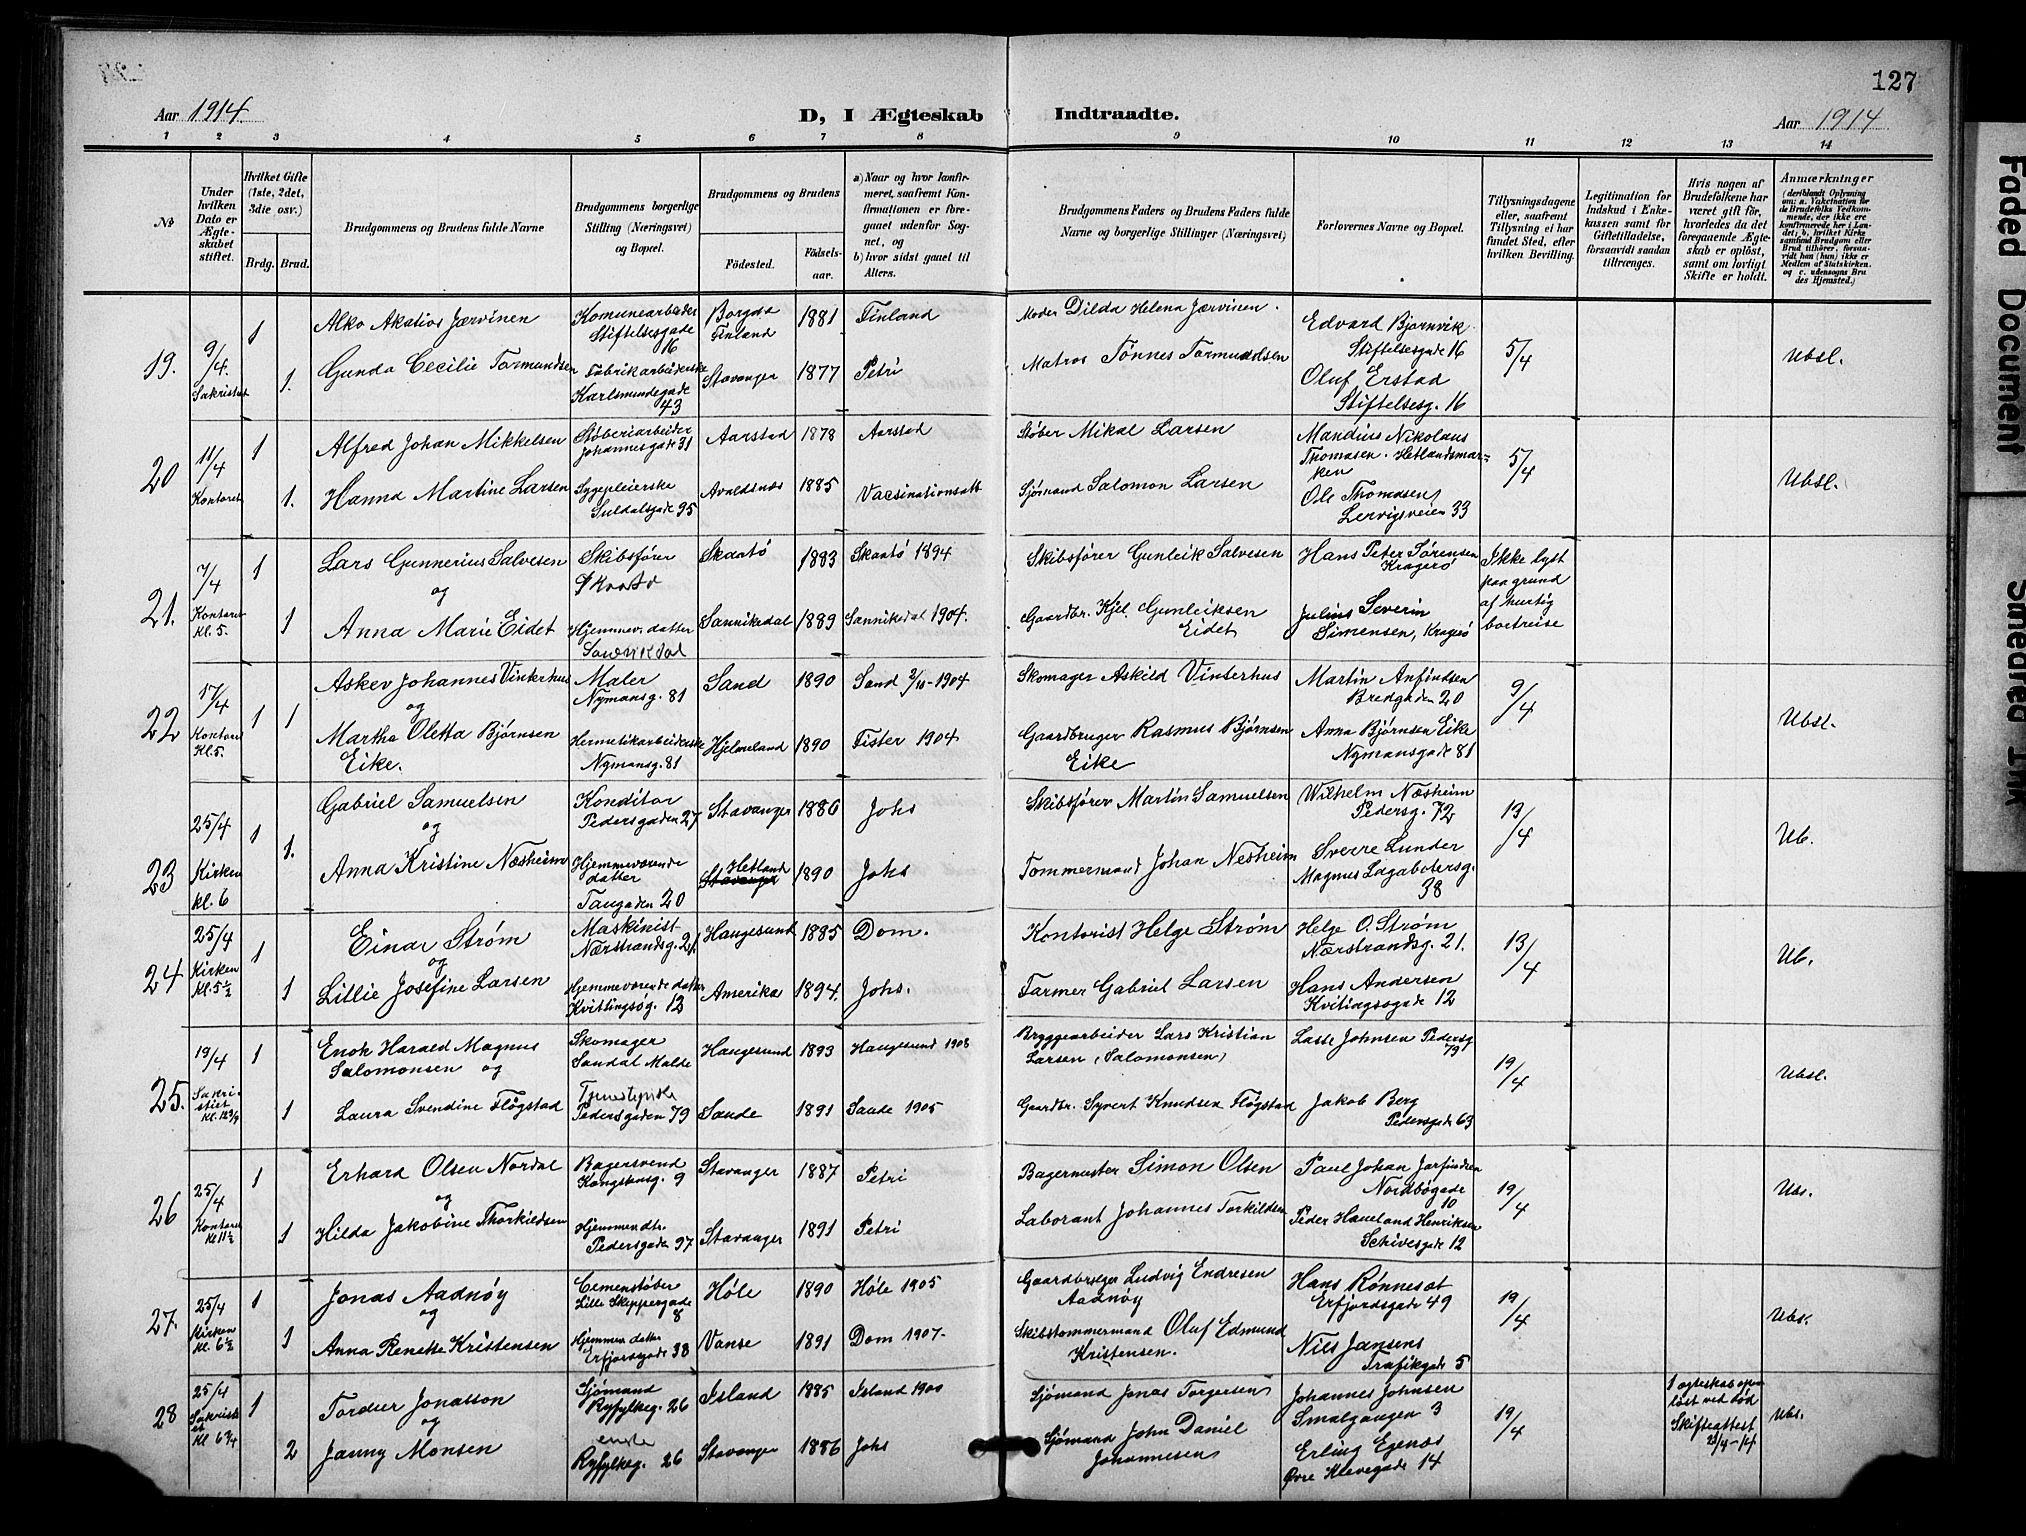 127
Aar 1914.
D, I Ægteskab Indtraadte.
Aar 1914
1 2 3 4 5 6 7 8 9 10 11 12 13 14
№
Under hvilken Dato er Ægteskabet stiftet.
Hvilket Gifte (1ste, 2det, 3die osv.)
Brdg. Brud.
Brudgommens og Brudens fulde Navne
Brudgommens borgerlige Stilling (Næringsvei) og Bopæl.
Brudgommens og Brudens
Födested. Födsels-aar.
a) Naar og hvor konfirmeret, saafremt Konfirmationen er foregaaet udenfor Sognet, og
b) hvor sidst gaaet til Alters.
Brudgommens Faders og Brudens Faders fulde Navne og borgerlige Stillinger (Næringsvei)
Forlovernes Navne og Bopæl.
Tillysningsdagene eller, saafremt Tillysning ei har fundet Sted, efter hvilken Bevilling.
Legitimation for Indskud i Enkekassen samt for Giftetilladelse, forsaavidt saadan tiltrænges.
Hvis nogen af Brudefolkene har været gift för, hvorledes da det foregaaende Ægteskab er oplöst, samt om lovligt Skifte er holdt.
Anmærkninger
(deriblandt Oplysning om: a. Vakcination for de Brudefolks Vedkommende, der ikke ere konfirmerede her i Landet; b. hvilket Kirkesamfund Brudgom eller Brud tilhörer, forsaavidt han (hun) ikke er Medlem af Statskirken, og c. udensogns Brudes Hjemsted.)
19. 9/4. Sakristiet
1 Alko Akatios Jærvinen Komunearbeider Stiftelsesgade 16 Borgda Finland 1881 Finland Moder Dilda Helena Jærvinen. Edvard Bjørnvik Stiftelsesgade 16 5/4 Ubsl.
1. Gunda Cecilie Tormundsen Fabrikarbeiderske Karlsmindegade 43 Stavanger 1877 Petri Matros Tønnes Tormundsen Oluf Erstad Stiftelsesg. 16
20 11/4 Kontoret
1 Alfred Johan Mikkelsen Støberiarbeider Johannesgade 31 Aarstad 1878 Aarstad Støber Mikal Larsen Mandius Nikolaus Thomasen. Hetlandsmarken 5/4 Ubsl.
1. Hanna Martine Larsen Sygepleierske Suldalsgade 35 Avaldsnes 1885 Vacsinationsatt Sjømand Salomon Larsen Ole Thomasen Lervigsveien 33
21. 7/4 Kontoret Kl. 5.
1 Lars Gunnerius Salvesen Skibsfører Skaatø Skaatö 1883 Skaatö 1894 Skibsfører Gunleik Salvesen Hans Peter Sørensen Kragerö Ikke lyst paa grund af hurtig bortreise
og
1 Anna Marie Eidet Hjemmev. datter Sannikdal Sannikedal 1889 Sannikedal 1904. Gaardbr. Kjel. Gunleiksen Eidet Julius Severin Simensen, Kragerö
22 17/4 Kontoret Kl. 5.
1 Askev Johannes Vinterhus Maler Nymansg. 81 Sand 1890 Sand 2/10-1904 Skomager Askild Vinterhus Martin Anfindsen Bredgaden 20 9/4 Ubsl.
og
1 Martha Oletta Bjørnsen Eike. Hermetikarbeiderske Nymansg. 81 Hjelmeland 1890 Fister 1904 Gaardbruger Rasmus Bjørnsen Eike Anna Bjørnsen Eike Nymansgade 81
23 25/4 Kirken kl. 6
1 Gabriel Samuelsen Konditor Pedersgaden 27 Stavanger 1886 Johs Skibsfører Martin Samuelsen Wilhelm Næsheim Pedersg. 72 13/4 Ub.
og
1. Anna Kristine Næsheim Hjemmeværende datter Taugaden 20 Hetland Stavanger 1890 Johs Tømmermand Johan Nesheim Sverre Lunder Magnus Lagabøtersg. 38
24 25/4 Kirken Kl. 5½
1 Einar Strøm Maskinist Nærstrandsg. 21. Haugesund 1885 Dom. Kontorist Helge Strøm Helge O. Strøm Nærstrandsg. 21. 13/4 Ub.
og
1 Lillie Josefine Larsen Hjemmeværende datter Kvitingsøg. 12 Amerika 1894. Johs. Farmer Gabriel Larsen Hans Andersen Kvitingsøgade 12
25. 19/4 Sakristiet kl. 12¾
1 Enok Harald Magnus Salomonsen og Skomager Sandal Malde Haugesund 1893 Haugesund 1908 Bryggearbeider Lars Kristian Larsen (Salomonsen) Lasse Johnsen Pedersg 79 19/4 Ubsl.
1 Laura Svendine Fløgstad Tjenestepike Pedersgaden 79 Saude 1891 Saude 1905 Gaardbr. Syvert Knudsen Fløgstad Jakob Berg Pedersgade 63
26 25/4 Kontoret Kl 11½
1 Erhard Olsen Nordal Bagersvend Kongstensg. 9 Stavanger 1887 Petri Bagermester Simon Olsen Paul Johan Jorfindsen Nordbøgade 10 19/4 Ubs.
og
1 Hilda Jakobine Thorkildsen Hjemmendtr. Pedersgaden 97 Stavanger 1891 Petri Laborant Johannes Torkildsen Peder Haueland Henriksen Schivesgade 12
27. 25/4 Kirken kl. 6½
1 Jonas Aadnøy Cementstøber Lille Skippergade 8 Høle 1890 Høle 1905 Gaardbruger Ludvig Endresen Aadnøy Hans Rønnesæt Erfjordsgade 49 19/4 Ubs.
og
1 Anna Renette Kristensen Hjemmev datter Erfjorsgade 38 Vanse 1891 Dom 1907. Skibstømmermand Oluf Edmund Kristensen. Nils Jansens Trafikgade 5
28 25/4 Sakristiet Kl 6¾
1 Tordur Jonasson Sjømand Ryfylkeg. 26 Island 1885 Island 1900 Sjømand Jonas Torgersen Johannes Johnsen Smalgangen 3 19/4 1 ægteskab opløst ved død Skifteattest 23/4-14 Ubs.
og
2 Janny Monsen enke Ryfylkeg. 26 Stavanger 1886 Johs Sjømand John Daniel Johannesen Erling Egenæs Øvre Klevegade 14
Faded Document
Smeared Ink